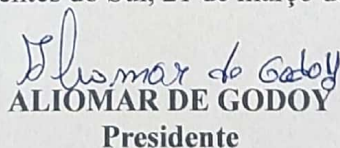 entes do Sul, 21 de março d
Aliomar de Godoy
ALIOMAR DE GODOY
Presidente